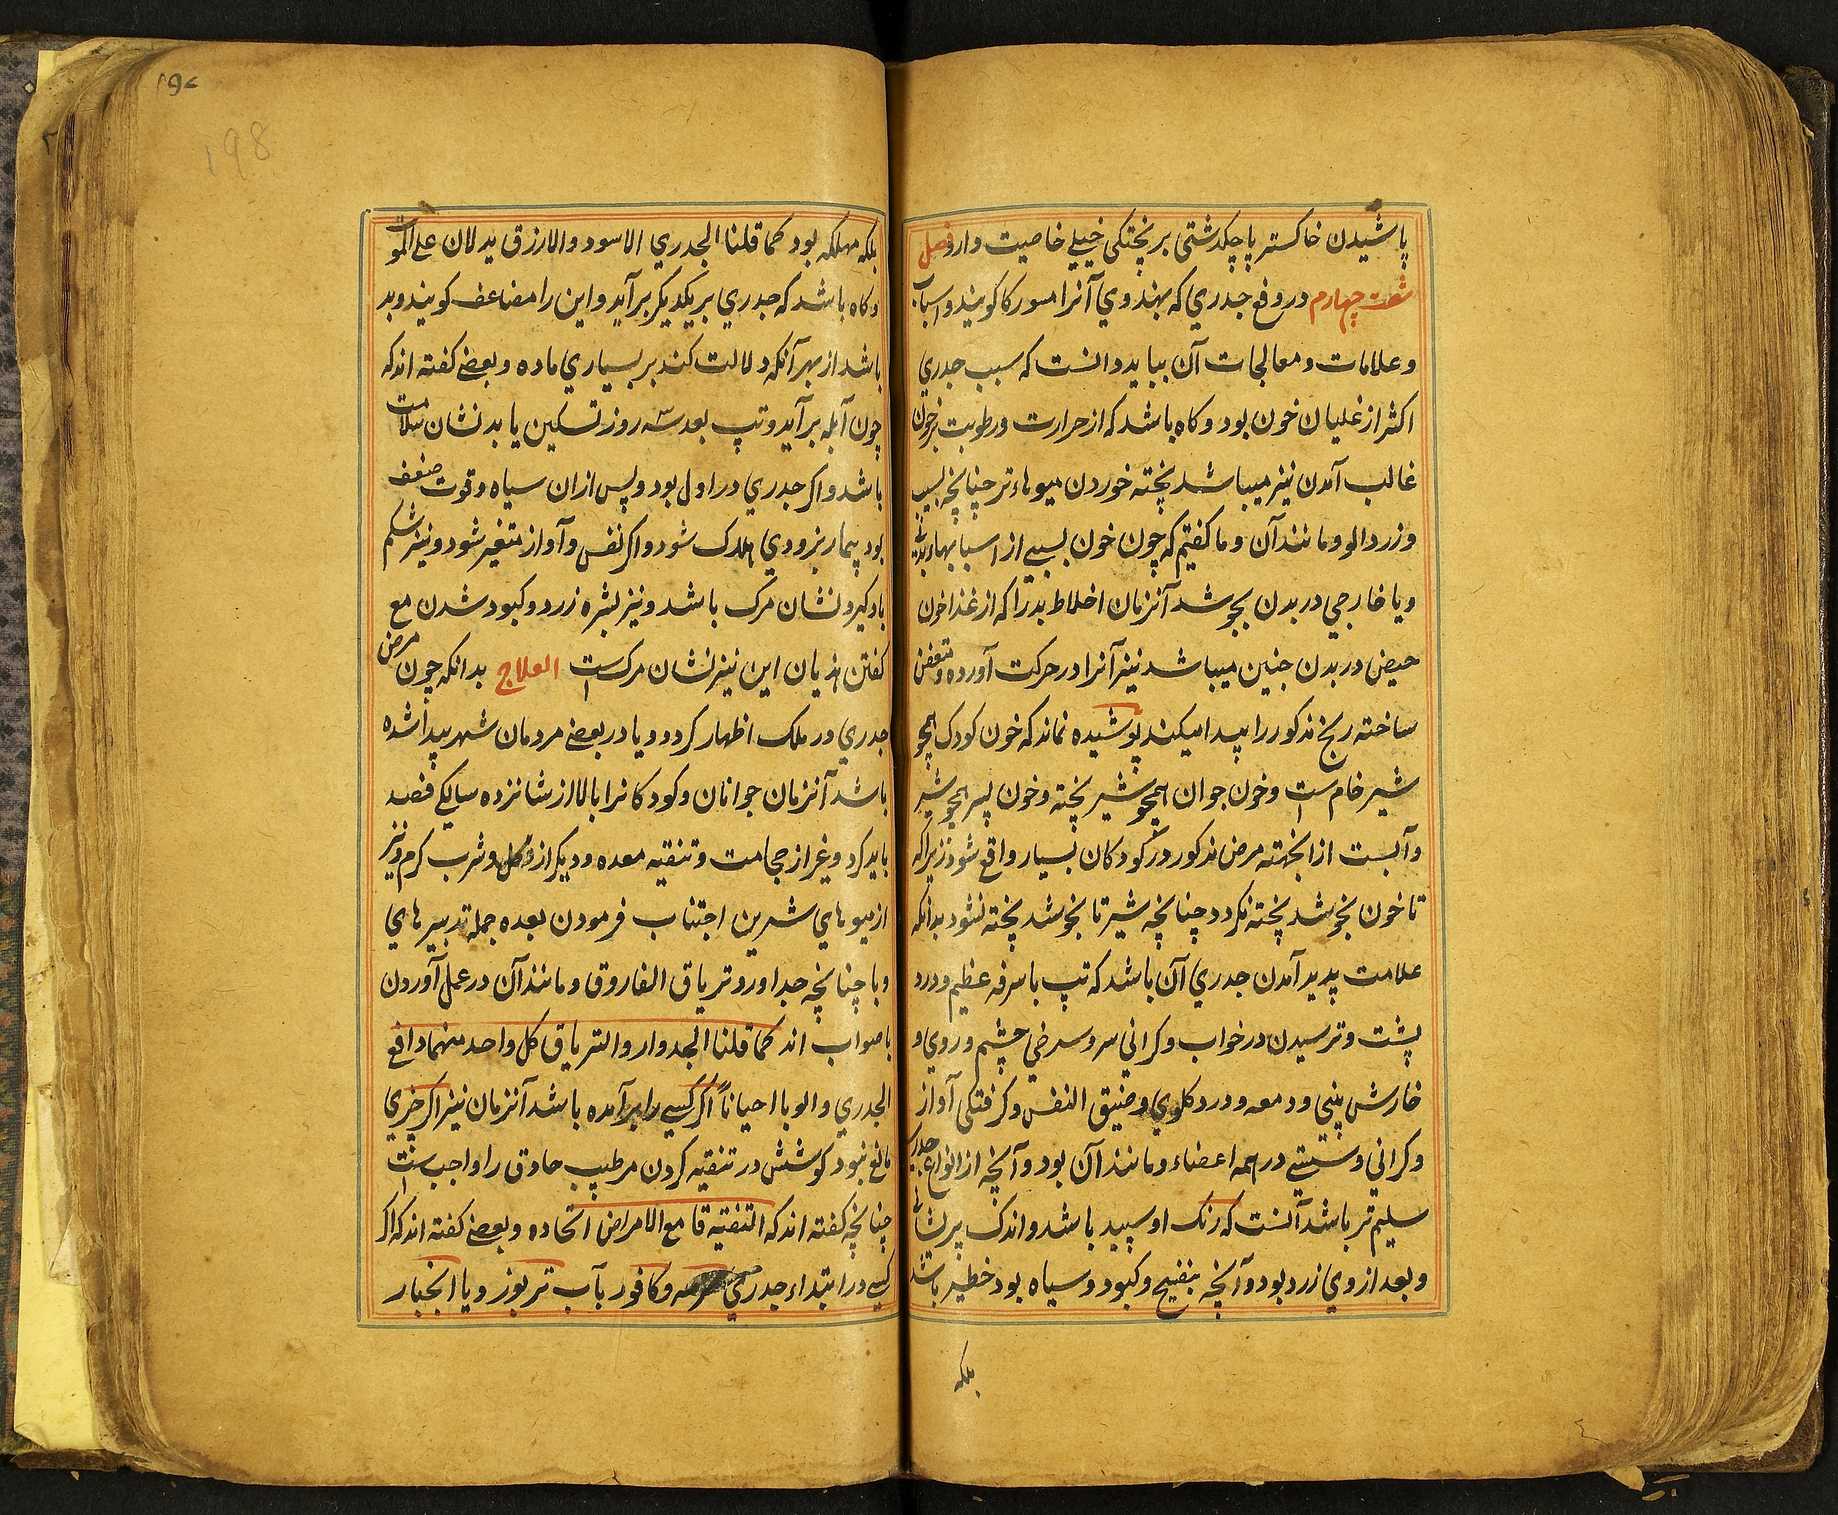 پاشیدن خاکستر پاچکدشتی بر پختکی خیلے خاصیت دارو فصل
شصت چهارم در وفع جدري که بهندوي آنرا مسورکا کویند و اسباب
و علامات و معالجات آن بباید دانست که سبب جدري
اکثر از غلیان خون بود و کاه باشد که از حرارت و رطوبت بر خون
غالب آمدن نیز میباشد پخته خوردن میوهاء تر چنانچه
و زردالو و مانند آن و ما کفتیم که چون خون بسبے از اسبابهاء بدنی
و یا خارجي در بدن بجوشد آنزمان اخلاط بد را که از غذا خون
حیض در بدن جنین میباشد نیز آنرا در حرکت آورده و متعفن
ساخته رنج مذکور را پیدا میکند پوشیده نماند که خون کودک همچو
شیر خام است و خون جوان همچو شیر پخته و خون پیر همچو شیر
و آبست ازانجهته مرض مذکور در کودکان بسیار واقع شود زیراکه
تا خون بجوشد پخته نکردد چنانچه شیر تا بجوشد پخته نشود بدانکه
علامت پدید آمدن جدري آن باشد که تپ با سرفه عظیم و درد
پشت و ترسیدن در خواب و کرانی سر و سرخي چشم و روي و
خارش بینی و دمعه و درد کلوي و ضیق النفس و کرفتکی آواز
و کرانی و سستے در همه اعضاء و مانند آن بود و آنچه از انواع جدري
سلیم تر باشد آنست که رنک او سپید باشد و اندک
و بعد از وي زرد بود و آنچه بنفیح و کبود و سیاه بود خطیر باشد
بلکه
۱۹۷
198
بلکه مهلکه بود کما قلنا الجدري الاسود و الارزق یدلان علے الموت
و کاه باشد که جدري بر یکدیکر برآید و این را مضاعف کویند و بد
باشد از بهر آنکه دلالت کند بر بسیاري ماده و بعضے کفته اند که
چون آبله برآید و تپ بعد سه روز تسکین یابد نشان سلامت
باشد و اکر جدري در اول بود و پس ازان سیاه و قوت ضعف
بود بیمار بزودي هلاک شود و اکر نفس و آواز متغیر شود و نیز شکم
باد کیرد نشان مرک باشد و نیز بشره زرد و کبود شدن مع
کفتن هذیان این نیز نشان مرکست العلاج بدانکه چون مرض
جدري در ملک اظهار کردد و یا در بعضے مردمان شهر پیدا شده
باشد آنزمان جوانان و کودکانرا بالا از شانزده سالکے فصد
باید کرد و غیر از حجامت و تنقیه معده و دیکر از اکل و شرب کرم و نیز
از میوهاي شیرین اجتناب فرمودن بعده جمله تدبیرهاي
وبا چنانچه جداور و تریاق الفاروق و مانند آن در عمل آوردن
باصواب اند کما قلنا الجدوار و التریاق کل واحد منهما دافع
الجدري و الوبا احیاناً اکر کسے را برآمده باشد آنزمان نیز اکر چیزي
مانع نبود کوشش در تنقیه کردن مر طبیب حاذق را واجب است
چنانچه کفته اند که التنقیة قامع الامراض الحاده و بعضے کفته اند که اکر
کسے در ابتداء جدري و کافور بآب تربوز و یا الخیار